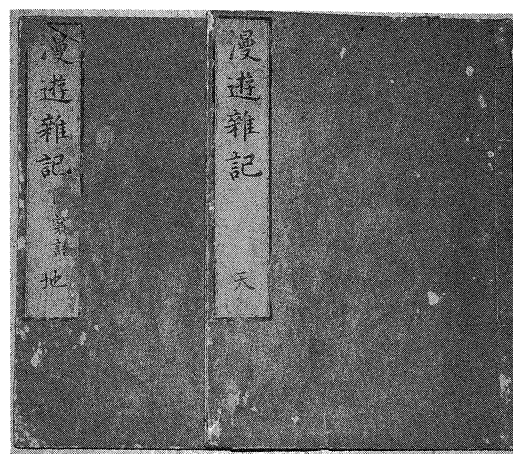 漫遊雜記 天
漫遊雜記 地